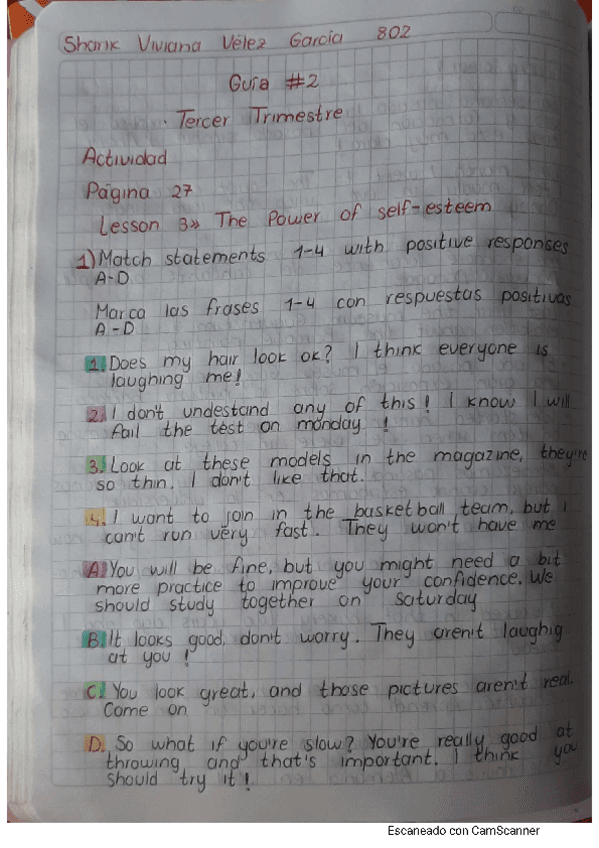 Sharik Viviana Vélez García 802
Guía #2
. Tercer Trimestre
Actividad
Página 27
Lesson 3» The Power of self-esteem
1) Match statements 1-4 with positive responses
A-D
Marca las frases 1-4 con respuestas positivas
A-D
1. Does my hair look ok? I think everyone is
laughing me!
2. I don't undestand any of this! I know I will
fail the test on monday !
3. Look at these models in the magazine, they're
so thin. I don't like that.
4. I want to join in the basketball team, but i
can't run very fast. They won't have me
A. You will be fine, but you might need a bit
more practice to improve your confidence. We
should study together on Saturday
B. It looks good, don't worry. They aren't laughig
at you!
C. You look great, and those pictures aren't real.
Come on
D. So what if you're slow? You're really good at
throwing, and that's important. I think you
should try it!
Escaneado con CamScanner